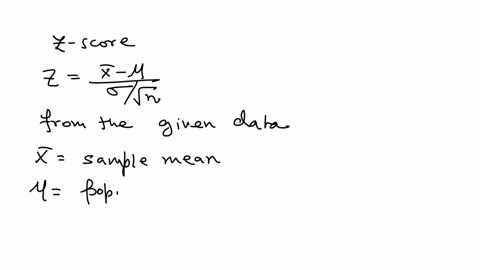 Z-score
Z = x̄-μ / σ/√n
from the given data
x̄ = sample mean
μ = pop.